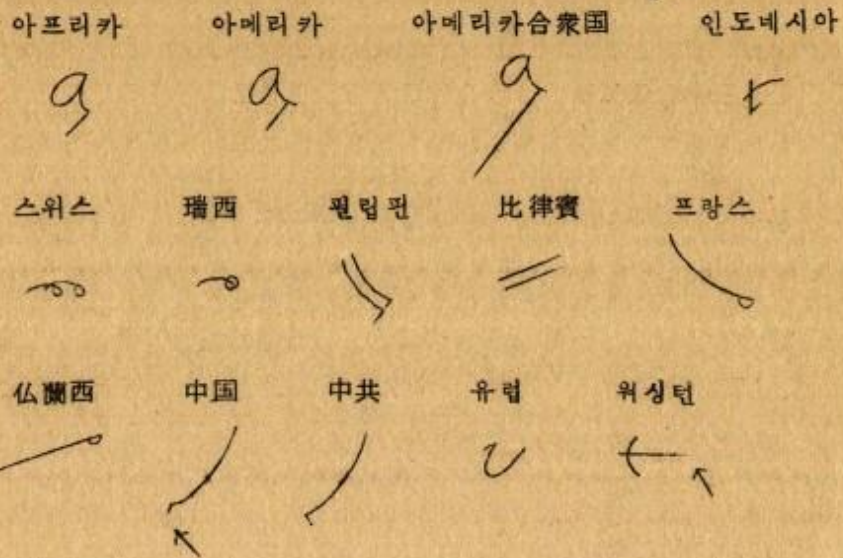 아프리카 아메리카 아메리카合衆国 인도네시아
스위스 瑞西 필립핀 比律賓 프랑스
仏蘭西 中国 中共 유럽 워싱턴